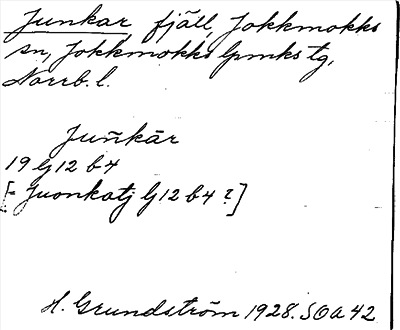 Junkar fjäll, Jokkmokks
sn, Jokkmokks lpmks tg,
Norrb. l.
Juñkār
19 G 12 b 4
[= Juonkatj G 12 b 4 ?]
H. Grundström 1928. SOA 42